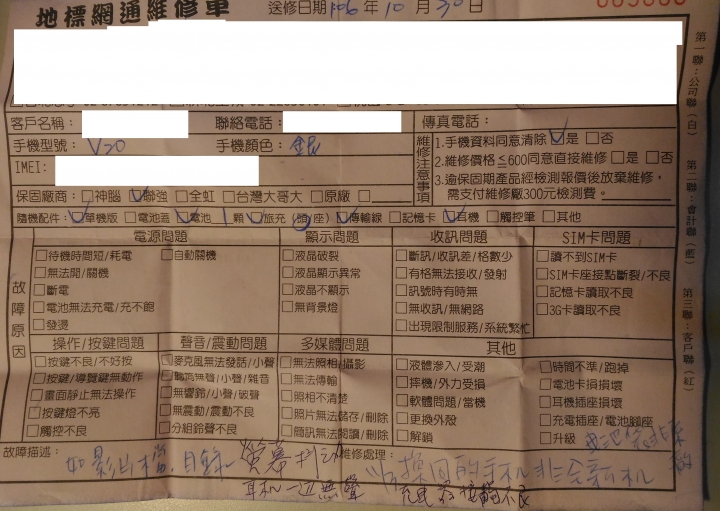 地標網通維修單
送修日期 106 年 10 月 30 日
客戶名稱： 聯絡電話： 傳真電話：
手機型號： V20 手機顏色： 銀
IMEI:
保固廠商：□神腦 ☑聯強 □全虹 □台灣大哥大 □原廠 □
維修注意事項
1.手機資料同意清除 ☑是 □否
2.維修價格≦600同意直接維修 □是 □否
3.逾保固期產品經檢測報價後放棄維修，
需支付維修廠300元檢測費。
隨機配件：☑單機版 □電池蓋 ☑電池 1 顆 ☑旅充(頭/座) ☑傳輸線 □記憶卡 ☑耳機 □觸控筆 □其他
故障原因
電源問題
□待機時間短/耗電 □自動關機
□無法開/關機
□斷電
□電池無法充電/充不飽
□發燙
顯示問題
□液晶破裂
□液晶顯示異常
□液晶不顯示
□無背景燈
收訊問題
□斷訊/收訊差/格數少
□有格無法接收/發射
□訊號時有時無
□無收訊/無網路
□出現限制服務/系統繁忙
SIM卡問題
□讀不到SIM卡
□SIM卡座接點斷裂/不良
□記憶卡讀取不良
□3G卡讀取不良
操作/按鍵問題
□按鍵不良/不好按
□按鍵/導覽鍵無動作
□畫面靜止無法操作
□按鍵燈不亮
□觸控不良
聲音/震動問題
□麥克風無法發話/小聲
□聽筒無聲/小聲/雜音
□無響鈴/小聲/破聲
□無震動/震動不良
□分組鈴聲不良
多媒體問題
□無法照相/攝影
□無法傳輸
□照相不清楚
□照片無法儲存/刪除
□簡訊無法閱讀/刪除
其他
□液體滲入/受潮
□摔機/外力受損
□軟體問題/當機
□更換外殼
□解鎖
□時間不準/跑掉
□電池卡損損壞
□耳機插座損壞
□充電插座/電池腳座
□升級
故障描述： 如影片檔.目錄 螢幕
耳机一边無聲
維修處理：
換回的手机非全新机
充電器接觸不良
第一聯：公司聯(白) 第二聯：會計聯